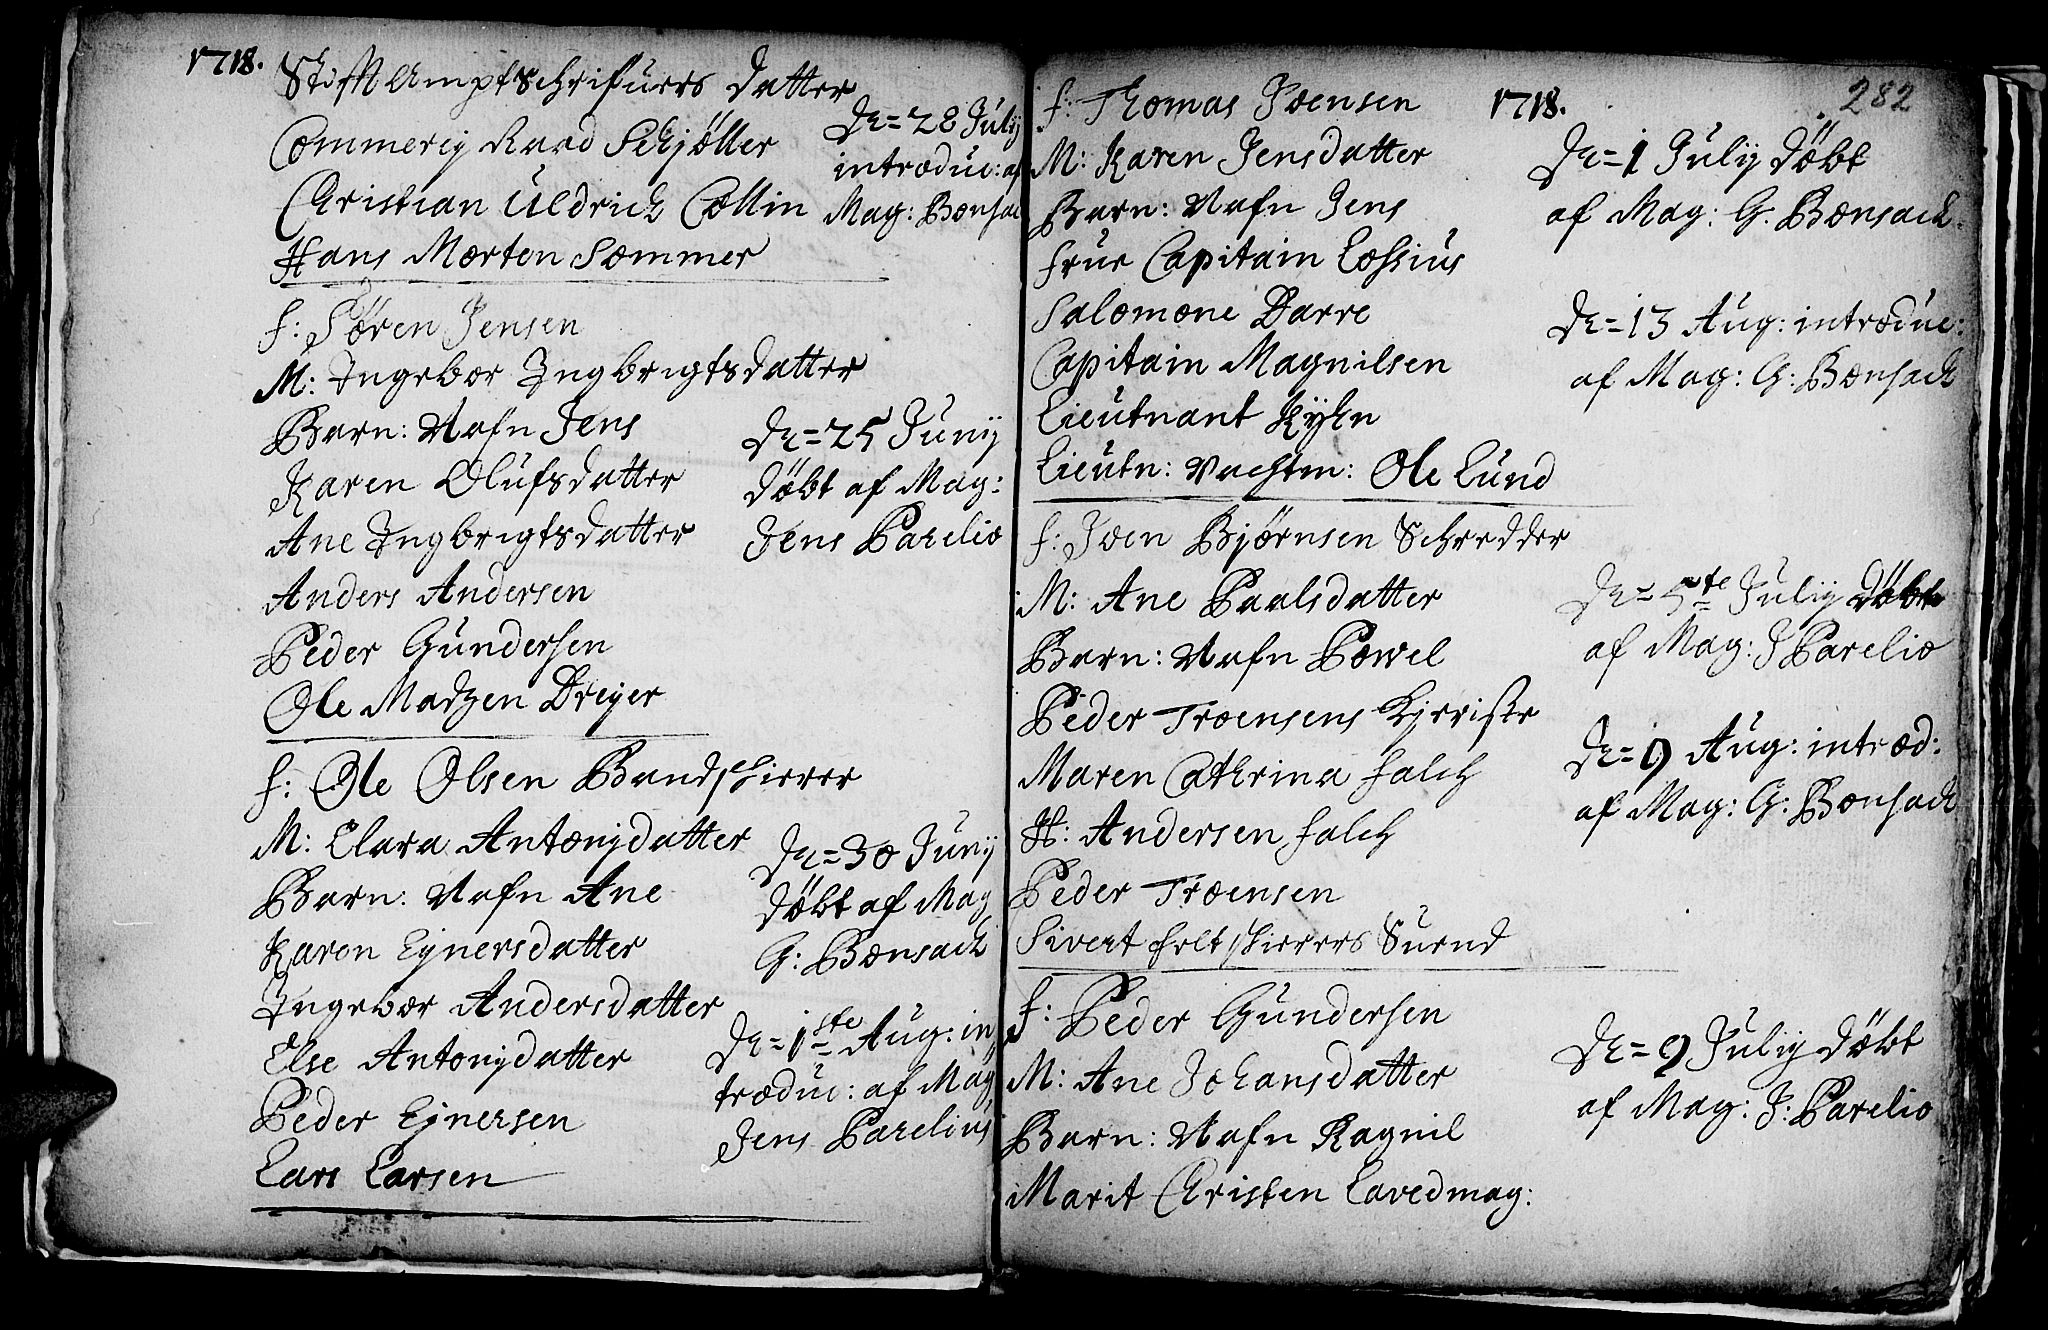 1718.
Stift Amptschrifuers Datter
Commercij Raad Schjøller
Christian Uldrich Collin
Hans Morten Sommer
De= 28 Julij
introduc: af
Mag: Bonsac
f: Søren Jensen
M: Ingebor Ingbrigtsdatter
Barn: Nafn Jens
Karen Olufsdatter
Ane Ingbrigtsdatter
Anders Andersen
Peder Gundersen
Ole Madzen Dreyer
De= 25 Junij
døbt af Mag:
Jens Parelio
f: Ole Olsen Bandskierer
M: Clara Antonijdatter
Barn: Nafn Ane
Karen Ejnersdatter
Ingebor Andersdatter
Else Antonijdatter
Peder Ejnersen
Lars Larsen
De= 30 Junij
døbt af Mag
G: Bonsach
De= 1ste Aug: in
troduc: af Mag
Jens Parelius
282
1718.
f: Thomas Joensen
M: Karen Jensdatter
Barn: Nafn Jens
Frue Capitain Lossius
Salomone Darre
Capitain Magnilsen
Lieutnant Kyhn
Lieutn: Vachtm: Ole Lund
De= 1 Julij døbt
af Mag: G. Bonsach.
De= 13 Aug: introduc:
af Mag: G: Bonsach
f: Joen Bjørnsen Schredder
M: Ane Paalsdatter
Barn: Nafn Powel
Peder Troensens Kjeriste
Maren Cathrina Falch
H: Andersen Falch
Peder Troensen
Sivert Feltskierers Suend
De= 5te Julij døbt
af Mag: J Parelio
De= 9 Aug: introd:
af Mag: G: Bonsach
f: Peder Gundersen
M: Ane Johansdatter
Barn: Nafn Ragnil
Marit Christen Lavedmag:
De= 9 Julij døbt
af Mag: J: Parelio